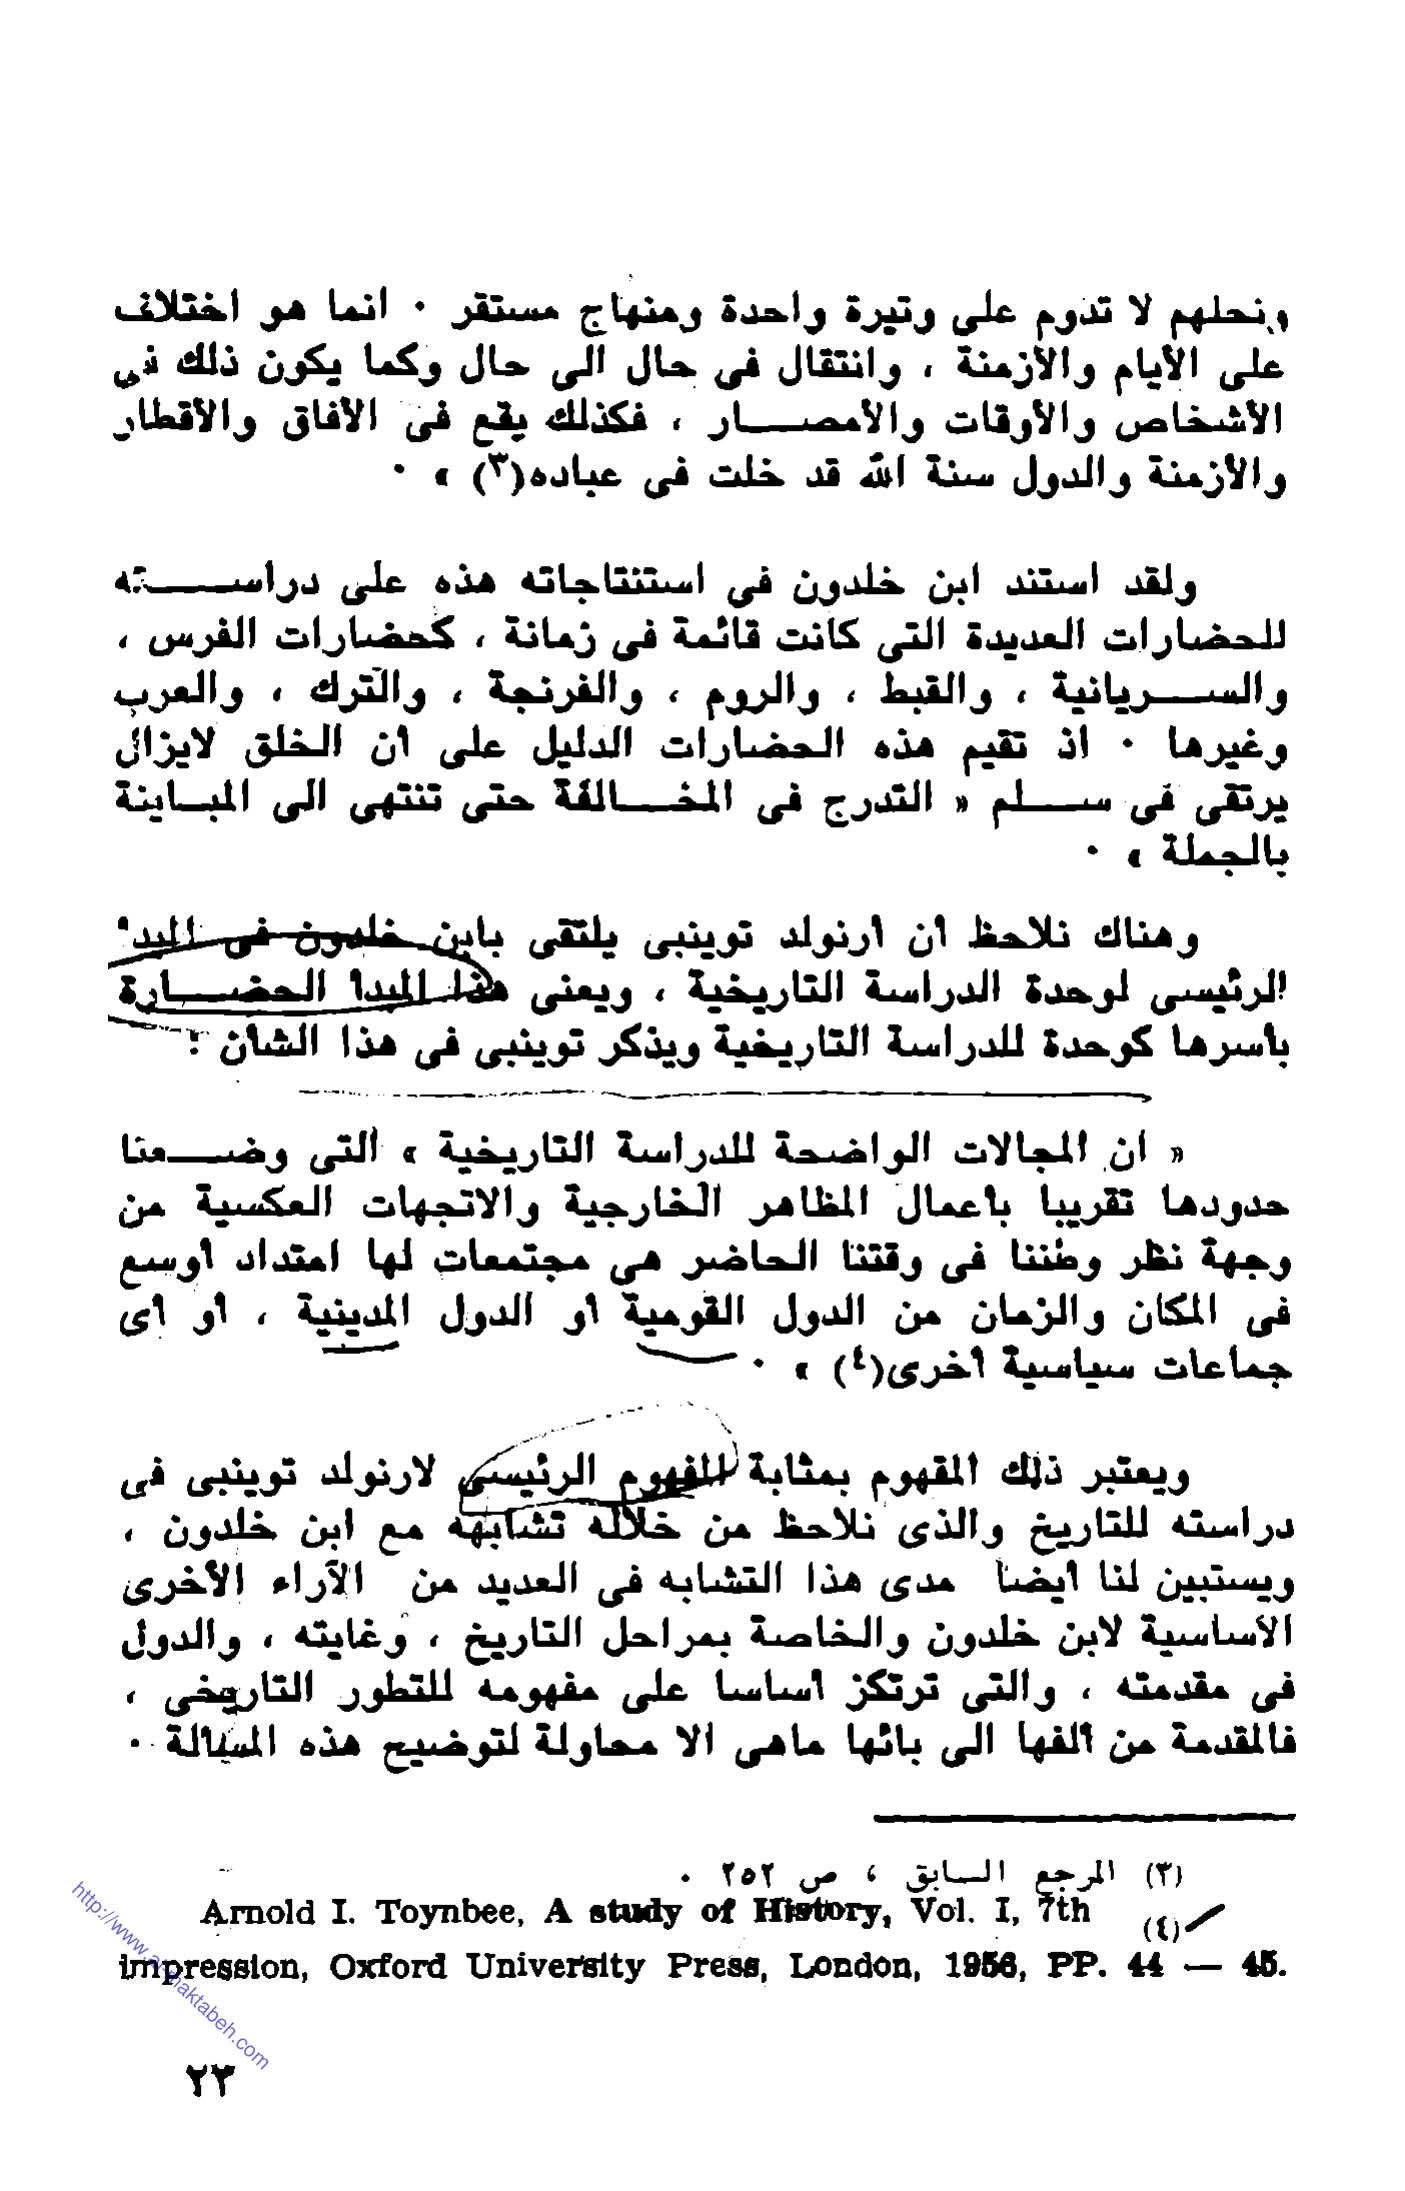 ونحلهم لا تدوم على وتيرة واحدة ومنهاج مستقر . انما هو اختلاف
على الأيام والأزمنة ، وانتقال فى حال الى حال وكما يكون ذلك فى
الأشخاص والأوقات والأمصار ، فكذلك يقع فى الأفاق والأقطار
والأزمنة والدول سنة الله قد خلت فى عباده(٣) » .
ولقد استند ابن خلدون فى استنتاجاته هذه على دراسته
للحضارات العديدة التى كانت قائمة فى زمانة ، كحضارات الفرس ،
والسريانية ، والقبط ، والروم ، والفرنجة ، والترك ، والعرب
وغيرها . اذ تقيم هذه الحضارات الدليل على أن الخلق لايزال
يرتقى فى سلم « التدرج فى المخالفة حتى تنتهى الى المباينة
بالجملة » .
وهناك نلاحظ أن أرنولد توينبى يلتقى بابن خلدون فى المبدأ
الرئيسى لوحدة الدراسة التاريخية ، ويعنى هذا المبدأ الحضارة
بأسرها كوحدة للدراسة التاريخية ويذكر توينبى فى هذا الشأن :
« ان المجالات الواضحة للدراسة التاريخية » التى وضعنا
حدودها تقريبا بأعمال المظاهر الخارجية والاتجهات العكسية من
وجهة نظر وطننا فى وقتنا الحاضر هى مجتمعات لها امتداد أوسع
فى المكان والزمان من الدول القومية أو الدول المدينية ، أو أى
جماعات سياسية أخرى(٤) » .
ويعتبر ذلك المقهوم بمثابة المفهوم الرئيسى لارنولد توينبى فى
دراسته للتاريخ والذى نلاحظ من خلاله تشابهه مع ابن خلدون ،
ويستبين لنا أيضا مدى هذا التشابه فى العديد من الآراء الأخرى
الأساسية لابن خلدون والخاصة بمراحل التاريخ ، وغايته ، والدول
فى مقدمته ، والتى ترتكز أساسا على مفهومه للتطور التاريخى ،
فالمقدمة من ألفها الى بائها ماهى الا محاولة لتوضيح هذه المسألة .
(٣) المرجع السابق ، ص ٢٥٢ .
(٤) Arnold I. Toynbee, A study of History, Vol. I, 7th
impression, Oxford University Press, London, 1956, PP. 44 — 45.
٢٣